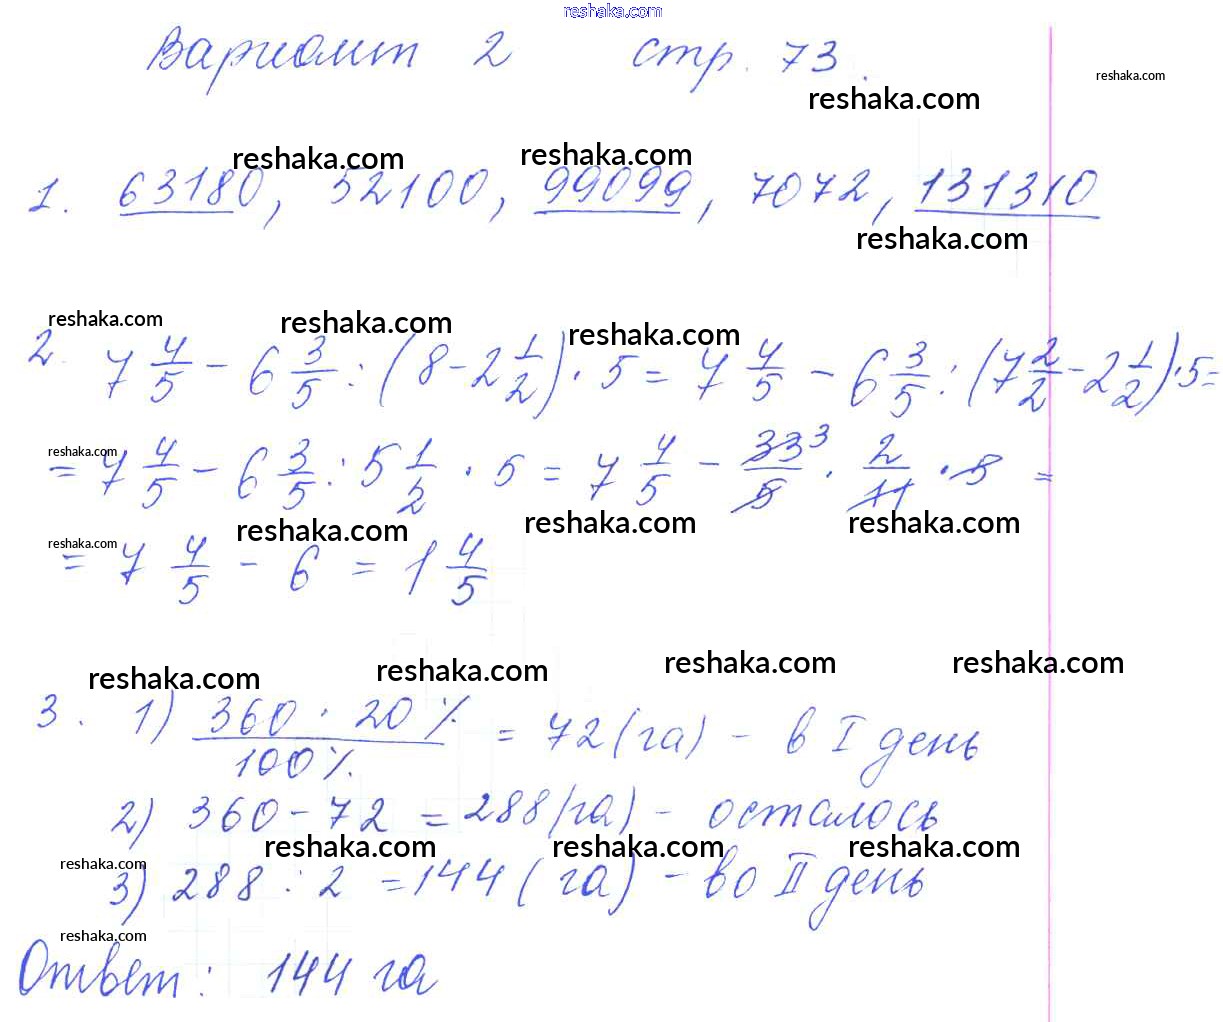 reshaka.com
Вариант 2 стр. 73.
reshaka.com
reshaka.com
reshaka.com reshaka.com
1. 63180, 52100, 99099, 7072, 131310
reshaka.com
reshaka.com reshaka.com reshaka.com
2. 7 4/5 - 6 3/5 : (8 - 2 1/2) · 5 = 7 4/5 - 6 3/5 : (7 2/2 - 2 1/2) · 5 =
reshaka.com
= 7 4/5 - 6 3/5 : 5 1/2 · 5 = 7 4/5 - 33 3/5 · 2/11 · 5 =
reshaka.com reshaka.com reshaka.com
reshaka.com
= 7 4/5 - 6 = 1 4/5
reshaka.com reshaka.com reshaka.com reshaka.com
3. 1) 360 · 20% / 100% = 72 (га) - в I день
2) 360 - 72 = 288 (га) - осталось
reshaka.com reshaka.com reshaka.com
reshaka.com
3) 288 : 2 = 144 (га) - во II день
reshaka.com
Ответ: 144 га